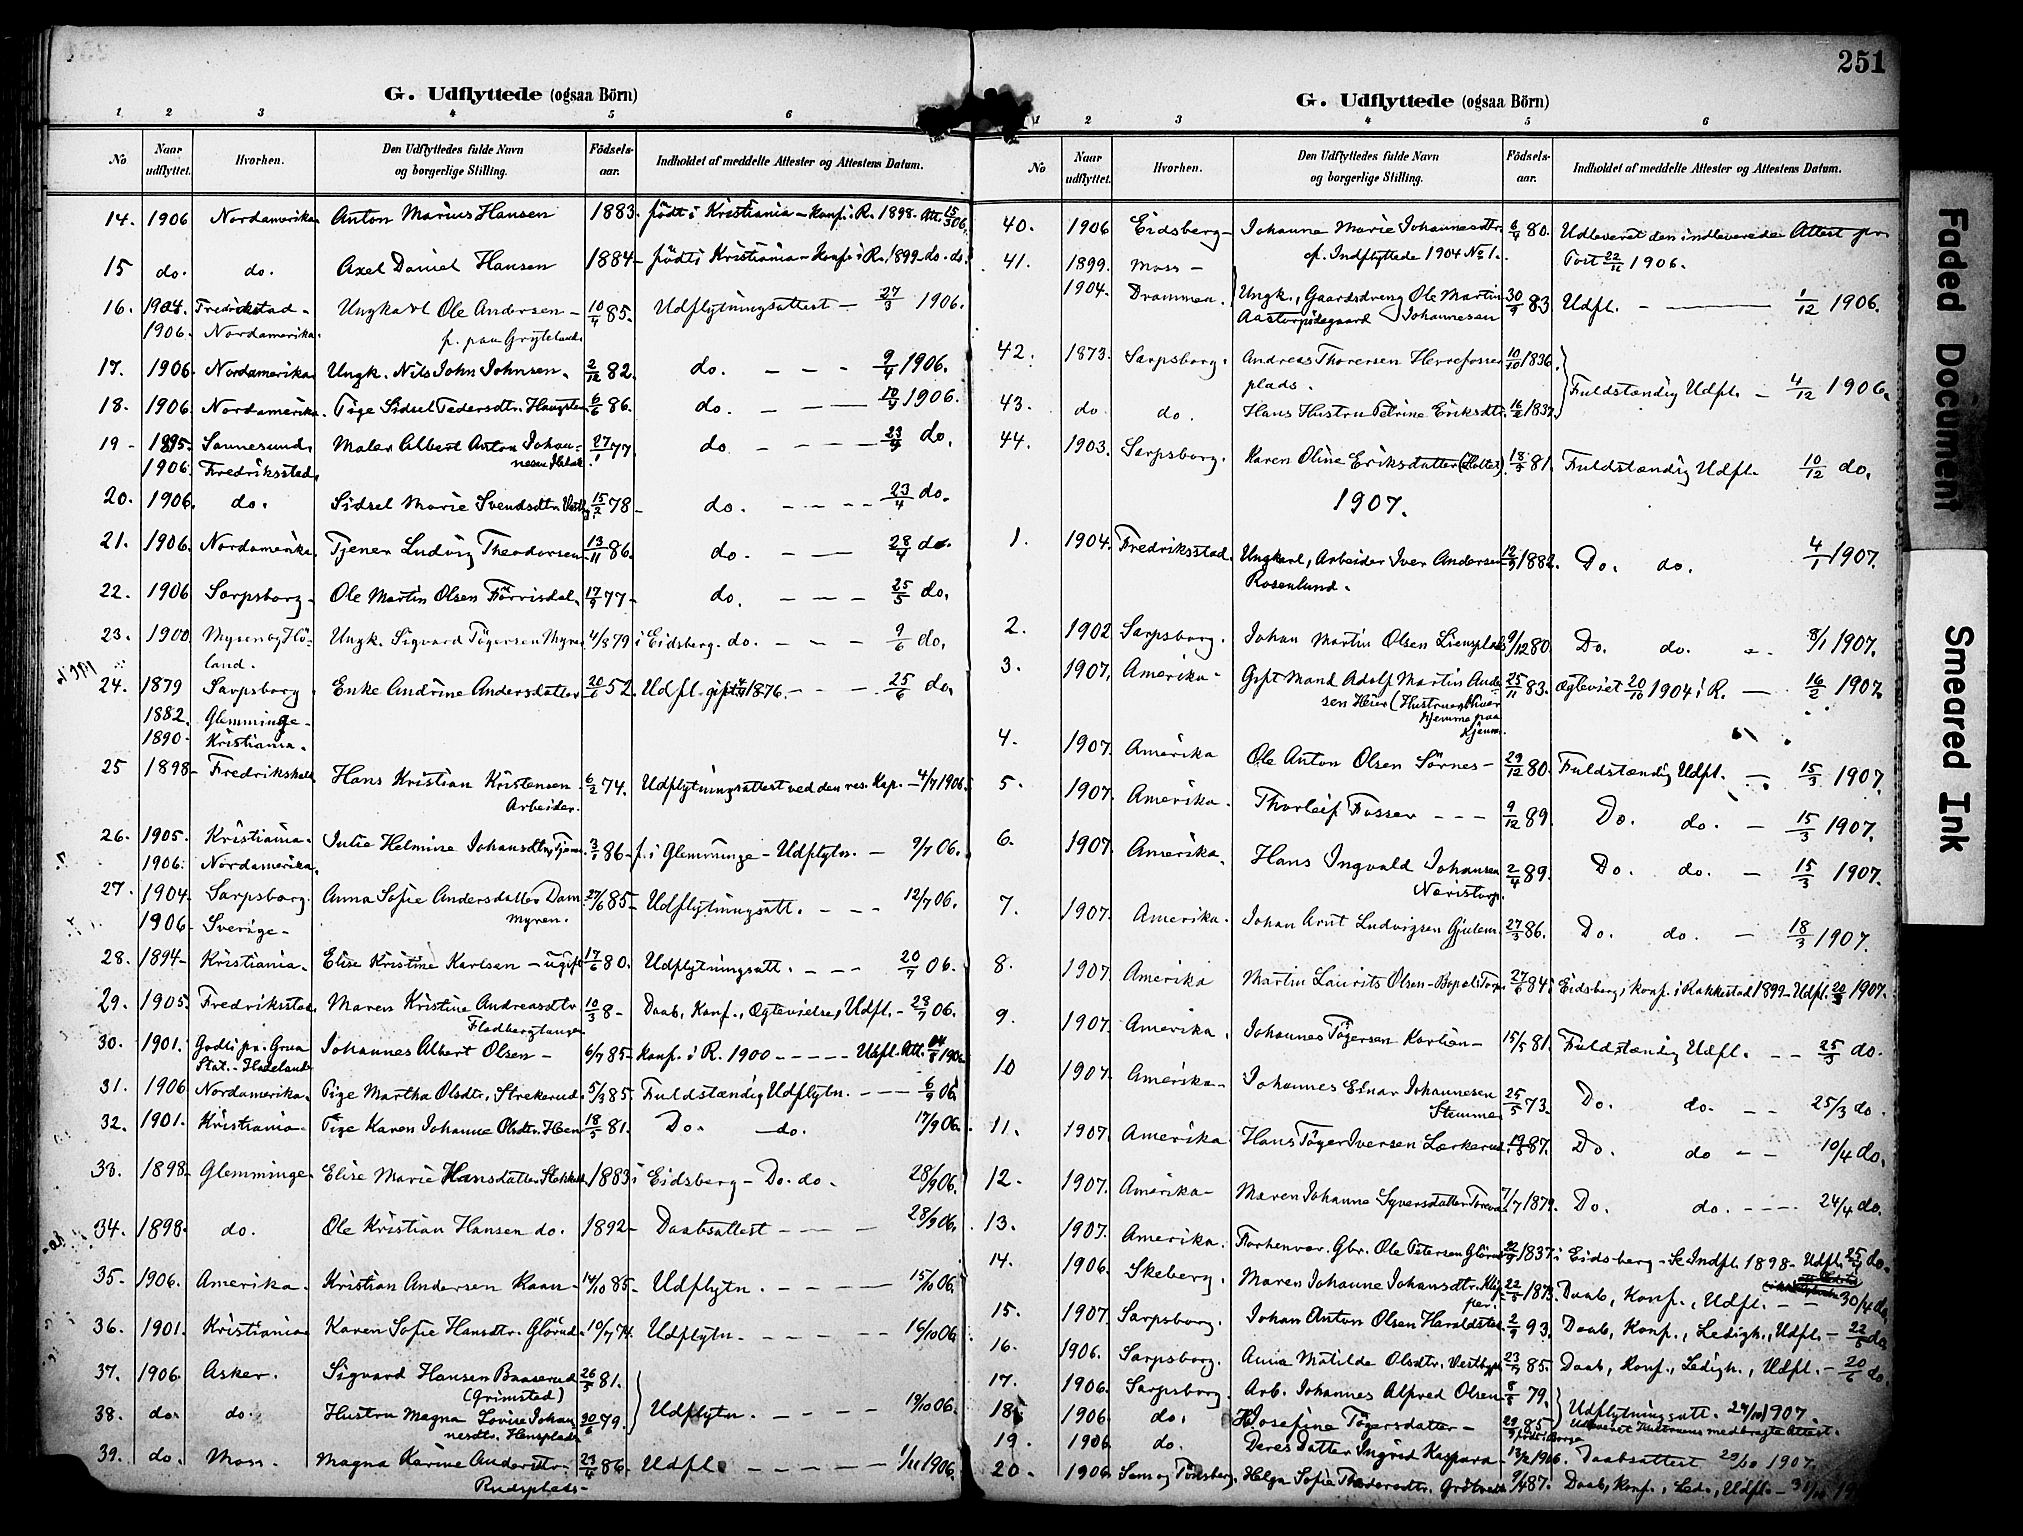 251
G. Udflyttede (ogsaa Börn)
1 2 3 4 5 6
No Naar udflyttet. Hvorhen. Den Udflyttedes fulde Navn og borgerlige Stilling. Födsels-aar. Indholdet af meddelte Attester og Attestens Datum.
14. 1906 Nordamerika Anton Marius Hansen 1883. födt i Kristiania – Konf. i R. 1898. Att. 15/3 06.
15 do. do. Axel Daniel Hansen 1884 – födt i Kristiania – Konf. i R. 1899 – do. do.
16. 1904. Fredrikstad – Ungkarl Ole Andersen – 10/4 85. Udflytningsattest – 27/3 1906.
1906. Nordamerika. f. paa Gryteland.
17. 1906. Nordamerika. Ungk. Nils John Johnsen. 2/12 82. do. – – – 9/4 1906.
18. 1906. Nordamerika. Pige Sidsel Pedersdtr. 6/6 86. do. – – 10/4 1906.
19 – 1895. Sannesund. Maler Albert Anton Johan- 27/1 77 do – – – 23/4 do.
1906. Fredriksstad. nesen
20. 1906. do. Sidsel Marie Svendsdtr. 15/2 78 – do. – – – 23/4 do.
21. 1906. Nordamerika. Tjener Ludvig Theodorsen 13/11 86. do. – – 28/4 do.
22. 1906 Sarpsborg – Ole Martin Olsen Förrisdal. 17/9 77 – do. – – – 25/5 do.
23. 1900. Mysen og Hö- Ungk. Sigvard Tögersen Myren 4/8 79 i Eidsberg. do. – – – 9/6 do.
land.
24. 1879 Sarpsborg Enke Andrine Andersdatter 20/6 52. Udfl. gift 1876. – – – 25/6 do.
1882. Glemminge –
1890. Kristiania.
25 1898 – Fredrikshald Hans Kristian Kristensen 6/2 74. Udflytningsattest ved den res. Kap. – 4/7 1906.
Arbeider.
26. 1905. Kristiania. Julie Helmine Johansdtr. Tjen. 3/1 86 – f. i Glemminge – Udflytn. – 9/7 06.
1906. Nordamerika.
27. 1904. Sarpsborg. Anna Sofie Andersdatter Dam- 27/6 85 – Udflytningsatt. – – – 12/7 06.
1906 – Sverige – myren.
28. 1894 – Kristiania. Elise Kristine Karlsen – ugift 17/6 80. Udflytningsatt. – – – 20/7 06.
29. 1905. Fredriksstad. Maren Kristine Andreasdtr. 10/3 8 – Daab, Konf., Ogtevielse, Udfl. – 28/7 06.
Fladbergtangen
30. 1901. Godli pr. Grua Johannes Albert Olsen – 6/7 85 – Konf. i R. 1900 – – – – Udfl. Att.
Stat. – Hadeland
31. 1906 Nordamerika. Pige Martha Olsdtr. Strekerud. 5/3 85. Fuldstændig Udflytn. – – – 6/9 06.
32. 1901. Kristiania – Pige Karen Johanne Olsdtr. Hen 18/5 81. Do. – do. 17/9 06.
33. 1898 – Glemminge – Elise Marie Hansdatter 1883 i Eidsberg – Do. do. 28/9 06.
34. 1898. do. Ole Kristian Hansen do. 1892 – Daabsattest – – – 28/9 06.
35. 1906. Amerika. Kristian Andersen Kaan – 14/10 85 – Udflytn. – – – 15/10 06.
36. 1901. Kristiania Karen Sofie Hansdtr. Glörud – 10/7 74. Udflytn. – – – – 16/10 06.
37. 1906 Asker. Sigvard Hansen Baaserud 26/5 81.
(Grimstad)
38. do. do. Hustru Magna Lovise Johan- 30/6 79. Udflytn. – – – – 19/10 06.
nesdtr. Hensplads
39. do Moss. Magna Karine Andersdtr. 23/4 86 – Udfl. – – – – 1/11 1906.
Rudsplads –
G. Udflyttede (ogsaa Börn)
1 2 3 4 5 6
No Naar udflyttet. Hvorhen. Den Udflyttedes fulde Navn og borgerlige Stilling. Födsels-aar. Indholdet af meddelte Attester og Attestens Datum.
40. 1906 Eidsberg – Johanne Marie Johannesdtr. 6/4 80. Udleveret den indleverede Attest pr.
cf. Indflyttede 1904 No 1. Post 22/11 1906.
41. 1899. Moss –
1904. Drammen. Ungk., Gaardsdreng Ole Martin 30/9 83 Udfl. – 1/12 1906.
Aastorpödegaard Johannesen
42. 1873. Sarpsborg. Andreas Thoresen Herrefosser 10/10 1836.
plads. Fuldstændig Udfl. – 4/12 1906.
43. do do. Hans Hustru Petrine Eriksdtr. 16/2 1837.
44. 1903. Sarpsborg. Karen Oline Eriksdatter (Holter) 18/3 81. Fuldstændig Udfl. 10/12 do.
1907.
1. 1904. Fredriksstad Ungkarl, Arbeider Iver Andersen 12/9 1882. Do. do. 4/1 1907.
Rosenlund.
2. 1902 Sarpsborg. Johan Martin Olsen Liensplads 9/12 80 Do. do. – 8/1 1907.
3. 1907, Amerika – Gift Mand Adolf Martin Ande- 25/11 83. Ægteviet 20/10 1904 i R. – 16/2 1907
sen Heier (Hustruen bliver
hjemme paa
Hjemm.
4. 1907. Amerika Ole Anton Olsen Sörnes – 29/12 80. Fuldstændig Udfl. – 15/3 1907
5. 1907. Amerika. Thorleif Fosser – – – 9/12 89. Do. do. – 15/3 1907.
6. 1907. Amerika. Hans Ingvald Johansen 2/4 89. Do. do. – 15/3 1907.
Naristorp.
7. 1907. Amerika. Johan Arnt Ludvigsen Gjulem. 27/3 86. Do. do. – 18/3 1907.
8. 1907. Amerika Martin Laurits Olsen – 27/6 84 i Eidsberg, konf. i Rakkestad 1899 – Udfl. 20/3 1907.
9. 1907. Amerika. Johannes Tögersen Kartien – 15/5 81. Fuldstændig Udfl. – – 25/3 do.
10 1907. Amerika – Johannes Einar Johannesen 25/5 73. Do. do. – – 25/3 do.
Stemme
11. 1907. Amerika Hans Töger Iversen Lerkerud. 19/8 87. Do. do – – 10/4 do.
12. 1907. Amerika – Maren Johanne Syversdatter 7/7 1879. Do. do. – – – 24/4 do.
13. 1907. Amerika. Forhenvær. Gbr. Ole Petersen Glörud 22/9 1837. i Eidsberg – Se Indfl. 1898 – Udfl. 25/4 do.
14. 1906. Skeberg. Maren Johanne Johansdtr. 22/5 1873. Daab, Konf., Udfl. – – 30/4 do
per.
15. 1907. Sarpsborg. Johan Anton Olsen Haraldstad 2/9 93. Daab, Konf., Ledigh., Udfl. – 22/5 do
16. 1906. Sarpsborg. Anna Matilde Olsdtr. Vestby 23/7 85. Daab, Konf., Ledigh., Udfl. – 20/6 do.
17. 1906. Sarpsborg. Arb. Johannes Alfred Olsen 8/5 79. Udflytningsatt. 24/10 1907
18. 1906. do. H. Josefine Tögersdatter – 29/9 85 Udleveret Hustruens medbragte Attest.
19. 1906 do. Deres Datter Ingrid Kaspara – 1906. Daabsattest 29/10 1907.
20. 1906 Sem og Tönsberg. Helga Sofie Thodorsdtr. 9/4 87. Daab, Konf., Led., Udfl. –
Faded Document
Smeared Ink